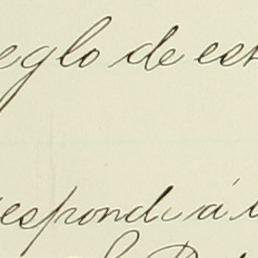 eglo de est
responde á l